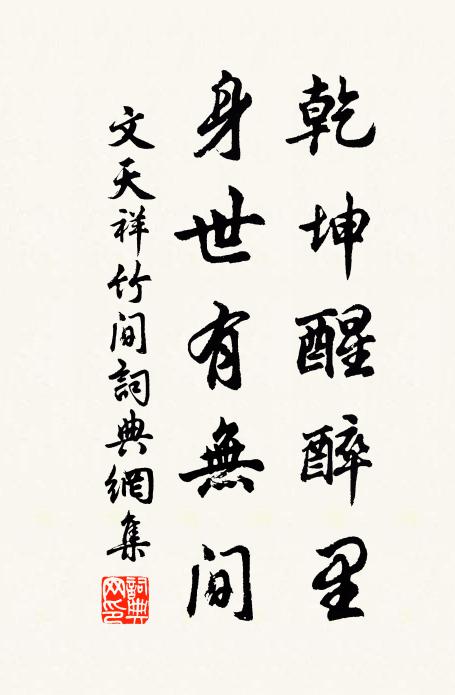 乾坤醒醉里
身世有無间
文天祥竹间詞典網集
詞典网印